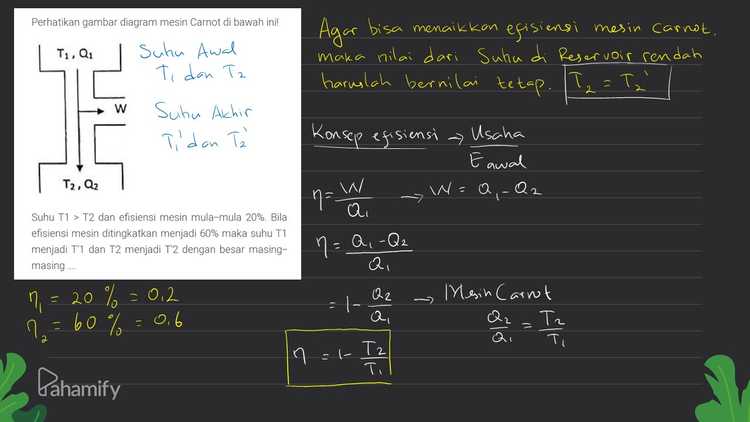 Perhatikan gambar diagram mesin Carnot di bawah ini!
T₁, Q₁
W
T₂, Q₂
Suhu Awal
T₁ dan T₂
Suhu Akhir
T₁' dan T₂'
Suhu T1 > T2 dan efisiensi mesin mula-mula 20%. Bila
efisiensi mesin ditingkatkan menjadi 60% maka suhu T1
menjadi T'1 dan T2 menjadi T'2 dengan besar masing-
masing ....
η₁ = 20 % = 0,2
η₂ = 60 % = 0,6
Pahamify
Agar bisa menaikkan efisiensi mesin Carnot,
maka nilai dari Suhu di Reservoir rendah
haruslah bernilai tetap. T₂ = T₂'
Konsep efisiensi → Usaha
E awal
η = W / Q₁ → W = Q₁ - Q₂
η = Q₁ - Q₂ / Q₁
= 1 - Q₂ / Q₁ → Mesin Carnot
Q₂ / Q₁ = T₂ / T₁
η = 1 - T₂ / T₁